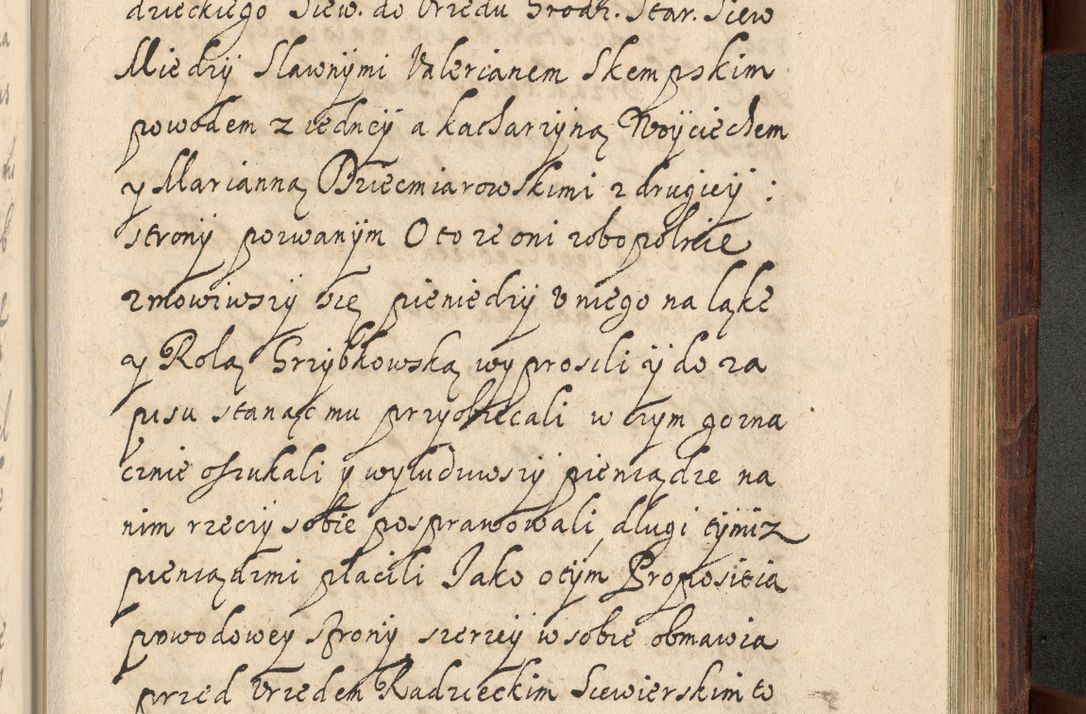 dzieckiego Siew. do Vrzędu Grodz. Star. Siew
Miedzÿ Sławnÿmi Valerianem Skempskim
powodem z iedneÿ a Kacharzÿną Woÿciechem
y Marianną Dziecmiarowskimi z drugieÿ :
stronÿ pozwanÿm O to ze oni zobopolnie
zmowiwszÿ się pieniedzÿ v niego na ląke
y Rolą Grzÿbkowską wyprosili ÿ do za
pisu stanąc mu przyobiecali w czym gozna
cznie oszukali y wyłudziwszÿ pieniądze na
nim rzeczÿ sobie posprawowali, długi tÿmiz
pieniądzmi płacili Jako o tÿm Propositia
powodowey strony szerzeÿ w sobie obmawia
przed Vrzedem Radzieckim Siewierskim to